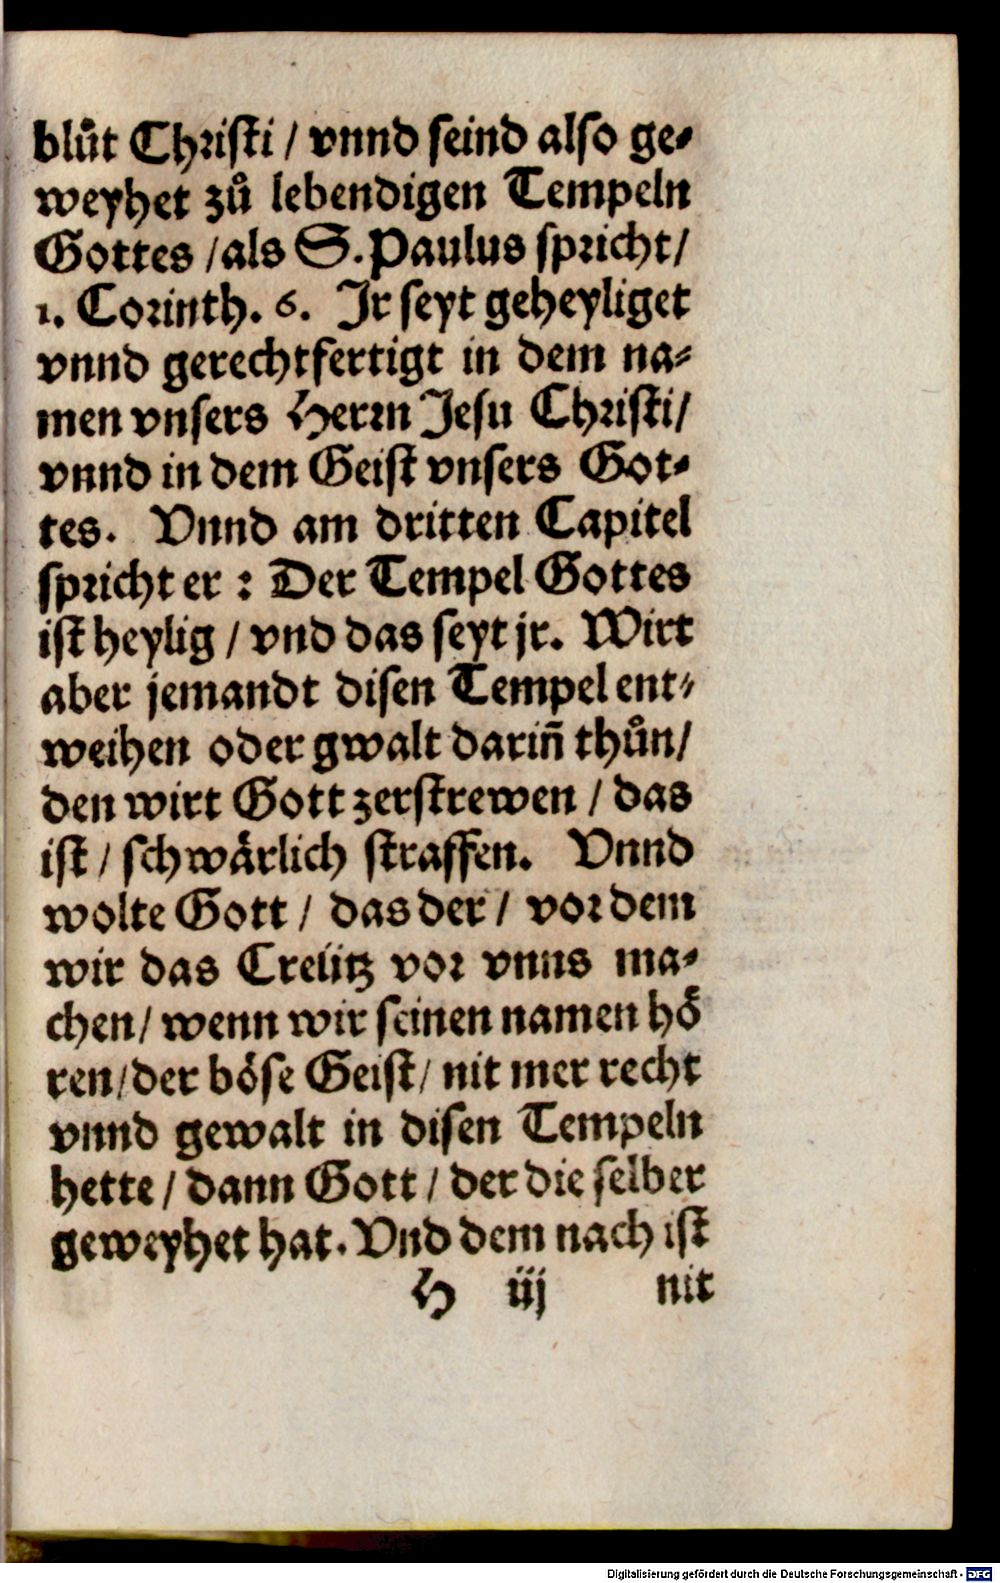 blůt Christi / vnnd seind also ge-
weyhet zů lebendigen Tempeln
Gottes / als S. Paulus spricht /
1. Corinth. 6. Ir seyt geheyliget
vnnd gerechtfertigt in dem na-
men vnsers Herrn Jesu Christi /
vnnd in dem Geist vnsers Got-
tes. Vnnd am dritten Capitel
spricht er : Der Tempel Gottes
ist heylig / vnd das seyt jr. Wirt
aber jemandt disen Tempel ent-
weihen oder gwalt darin̄ thůn /
den wirt Gott zerstrewen / das
ist / schwårlich straffen. Vnnd
wolte Gott / das der / vor dem
wir das Creütz vor vnns ma-
chen / wenn wir seinen namen hö
ren / der böse Geist / nit mer recht
vnnd gewalt in disen Tempeln
hette / dann Gott / der die selber
geweyhet hat. Vnd dem nach ist
H iij nit
Digitalisierung gefördert durch die Deutsche Forschungsgemeinschaft - DFG